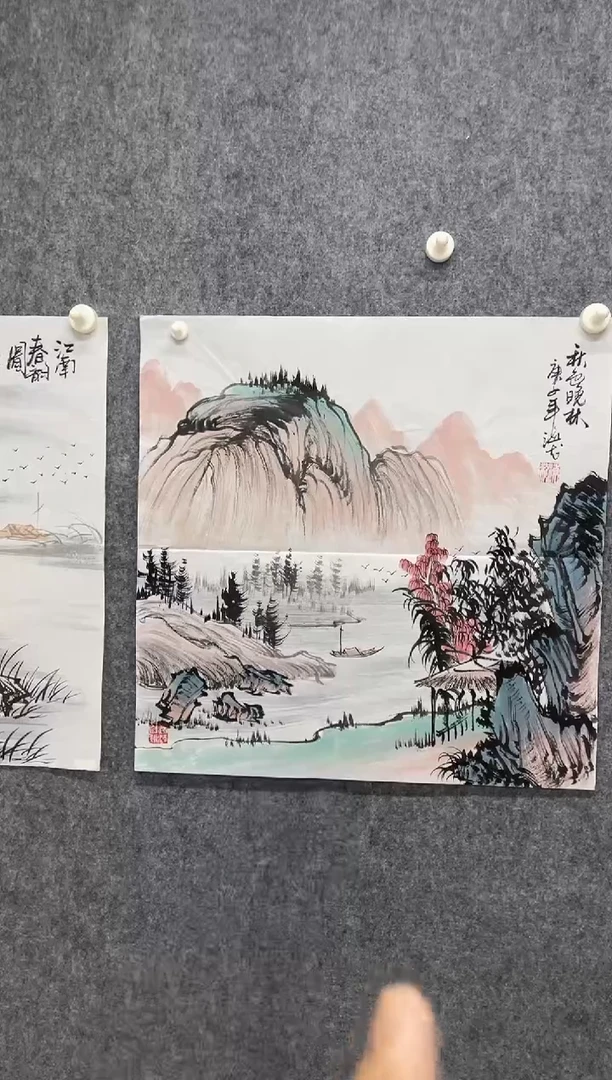 江南
春韵
图
秋色晚林
庚子年